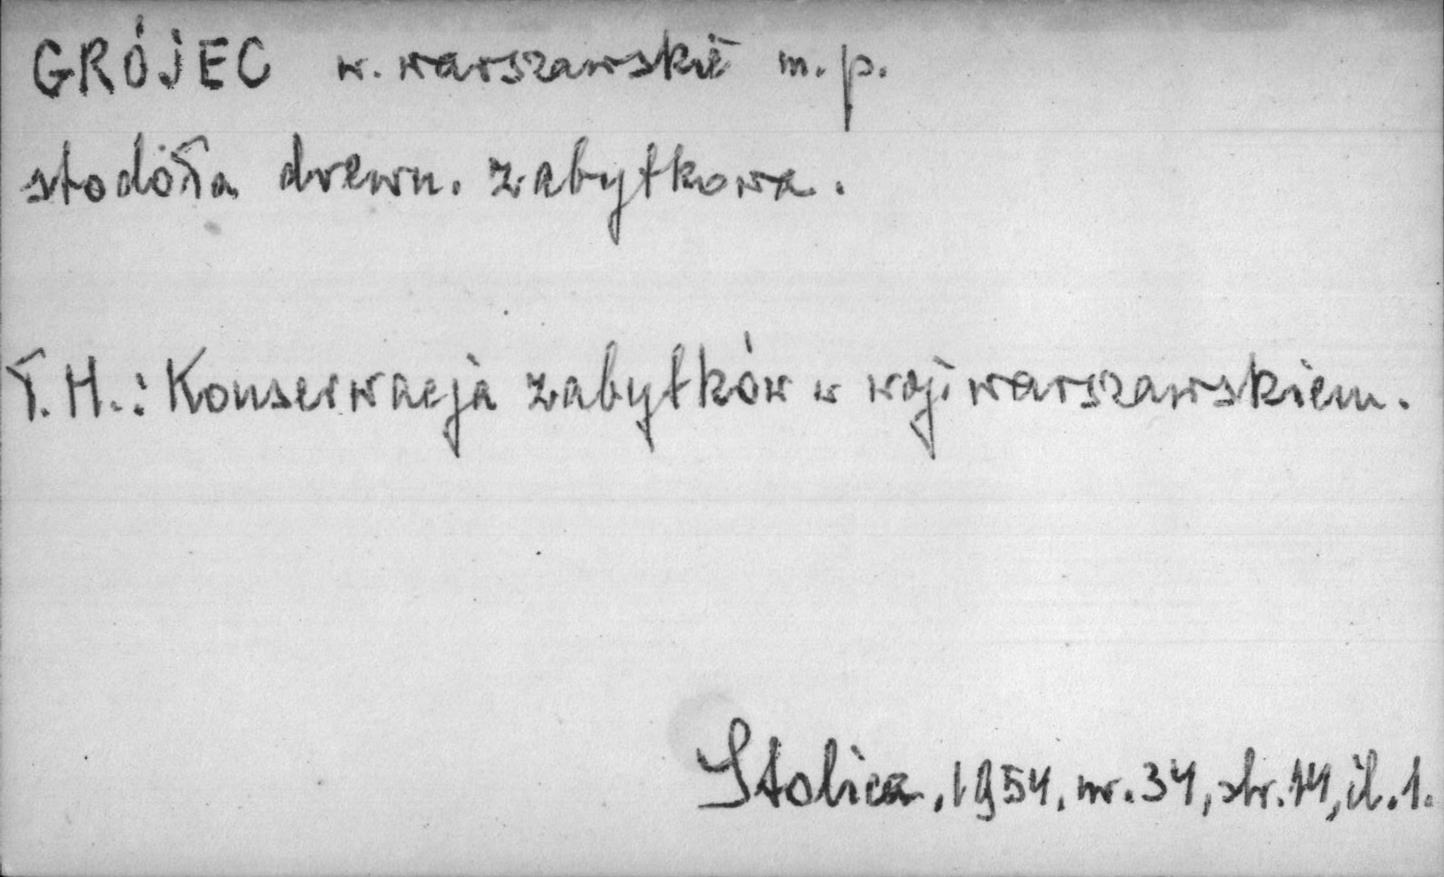 GRÓJEC w. warszawskie m. p.
stodóła drewn. zabytkowa.
Ł. H.: Konserwacja zabytków w woj. warszawskiem.
Stolica, 1954, nr. 34, str. 14, il. 1.